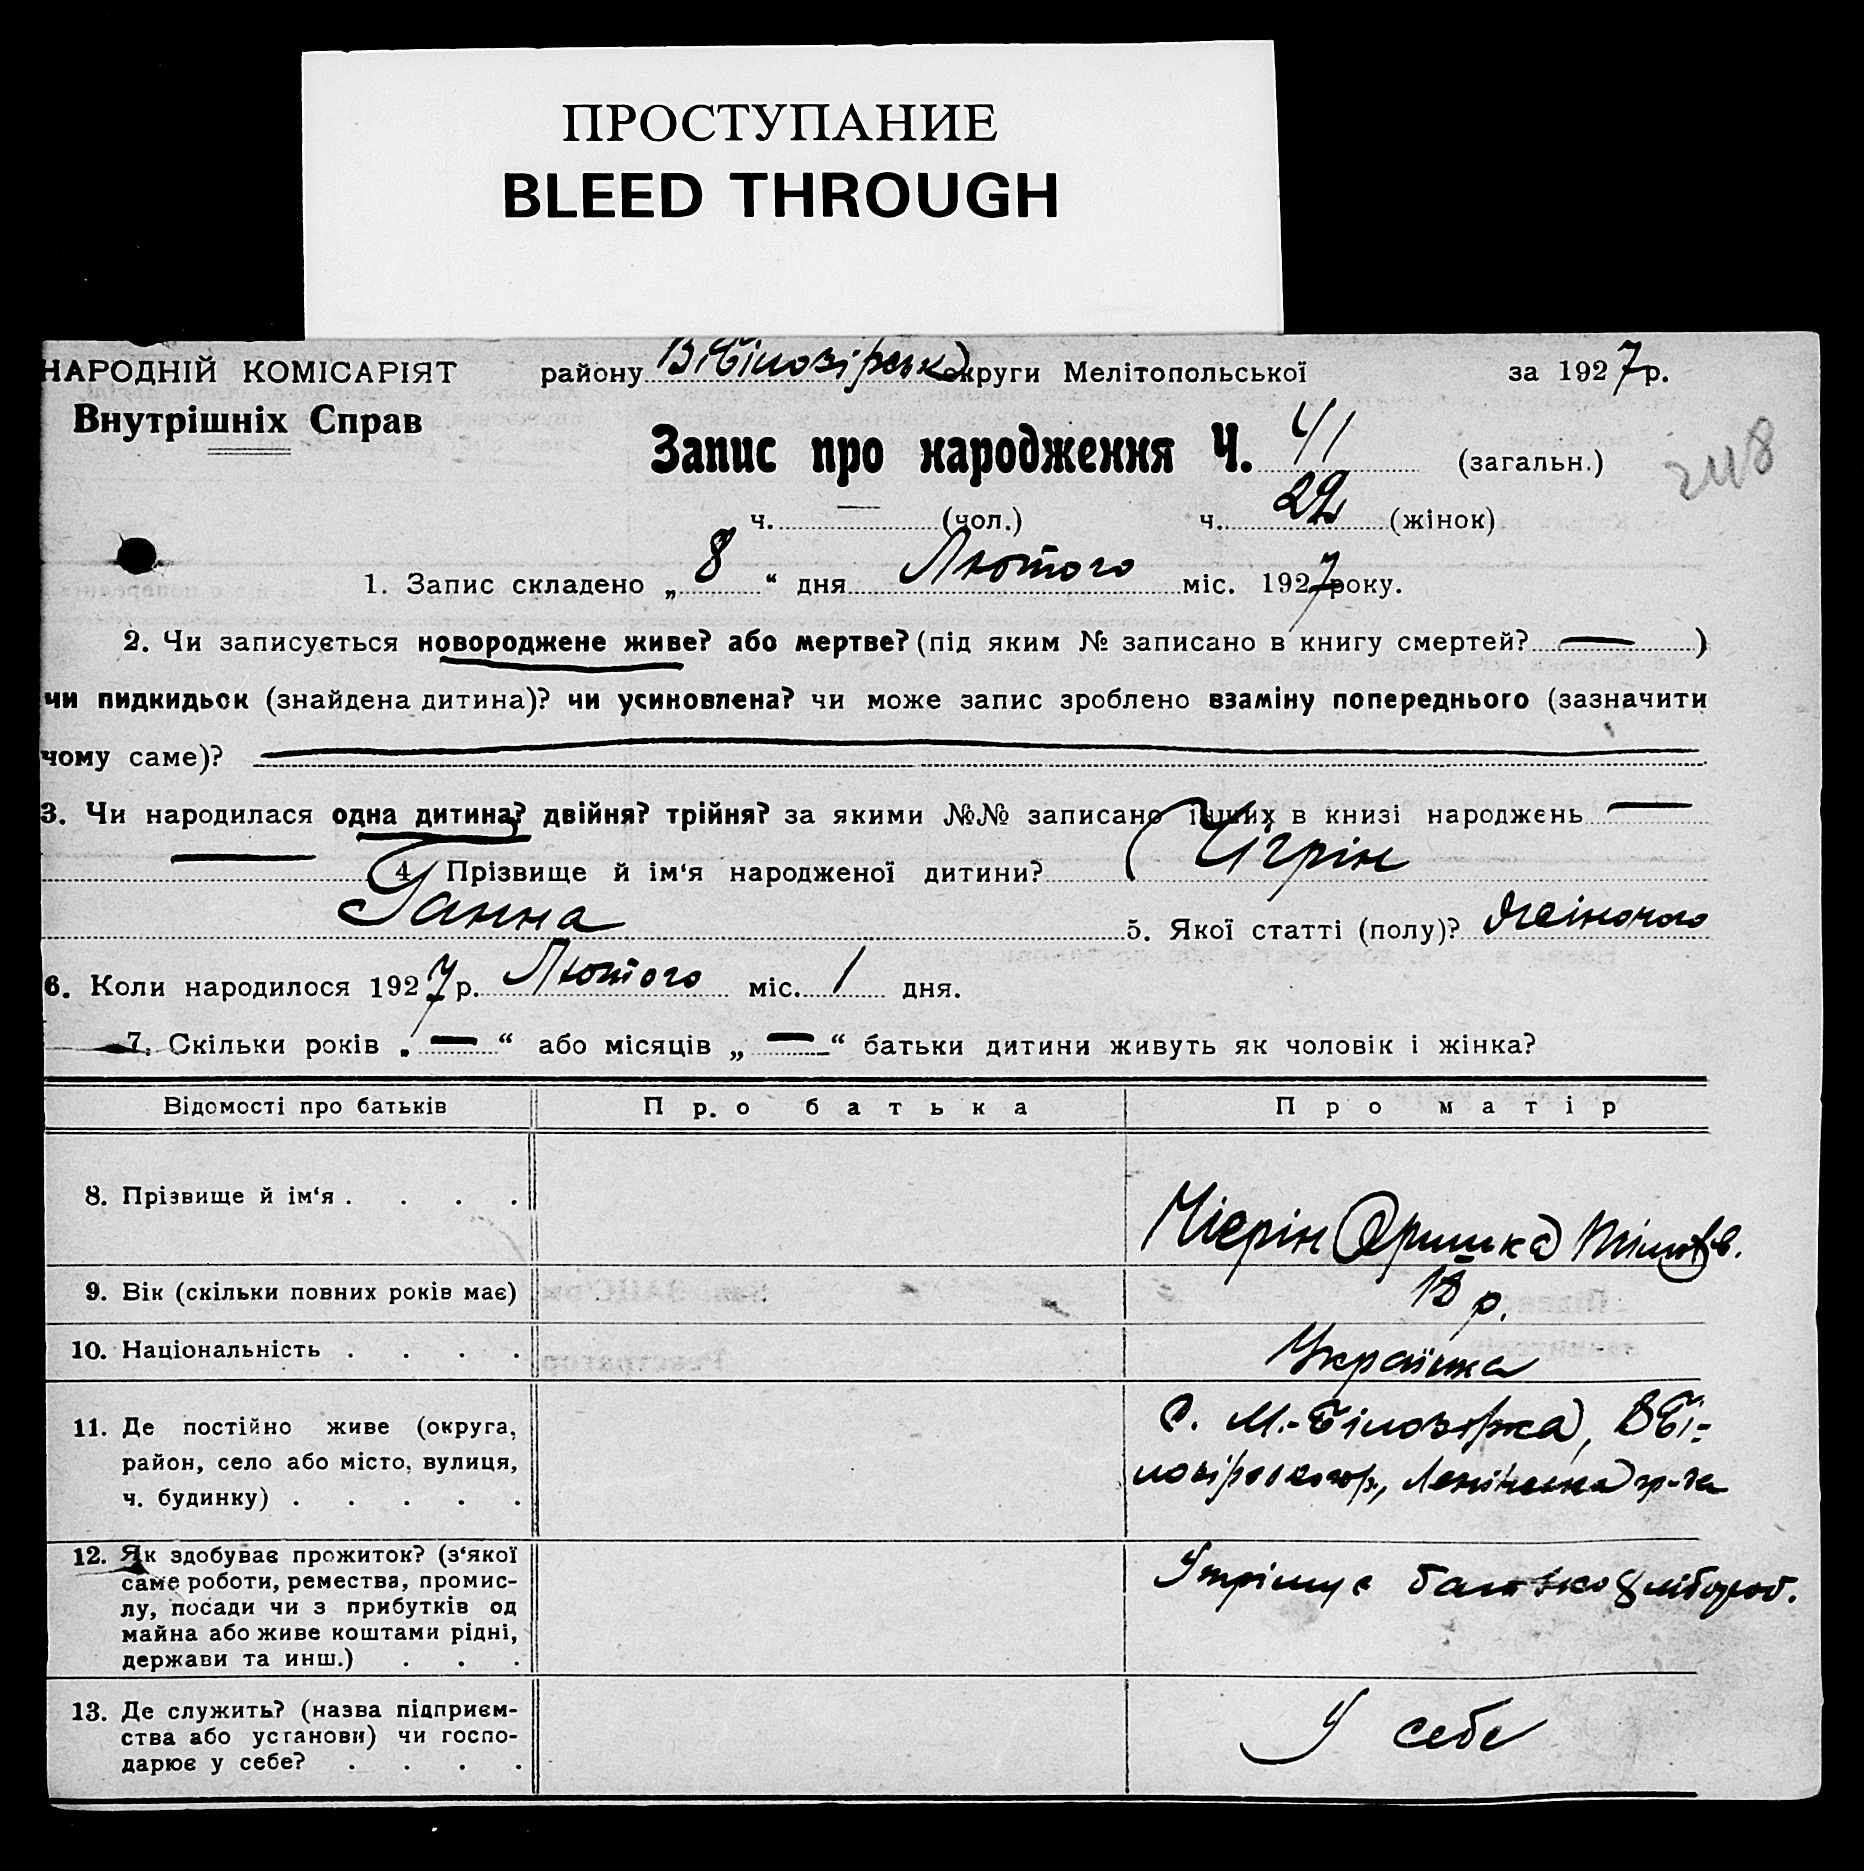 ПРОСТУПАНИЕ
BLEED THROUGH
НАРОДНІЙ КОМІСАРІЯТ району В Білозірськ округи Мелітопольської за 1927 р.
Внутрішніх Справ
Запис про народження Ч. 41 (загальн.)
ч. — (чол.) ч. 22 (жінок)
1. Запис складено „ 8 “ дня Лютого міс. 1927 року.
2. Чи записується новороджене живе? або мертве? (під яким № записано в книгу смертей? — )
чи пидкидьок (знайдена дитина)? чи усиновлена? чи може запис зроблено взаміну попереднього (зазначити
чому саме)? —
3. Чи народилася одна дитина? двійня? трійня? за якими №№ записано інших в книзі народжень —
— 4. Прізвище й ім‘я народженої дитини? Чігрін
Ганна 5. Якої статті (полу)? жіночого
6. Коли народилося 1927 р. Лютого міс. 1 дня.
7. Скільки років „ — “ або місяців „ — “ батьки дитини живуть як чоловік і жінка?
Відомості про батьків Про батька Про матір
8. Прізвище й ім‘я . . . . Чігрін Оришка
9. Вік (скільки повних років має) 18 р.
10. Національність . . . . Українка
11. Де постійно живе (округа, С. М.-Білозірка, В Бі-
район, село або місто, вулиця, лозірського р.,
ч. будинку) . . . . .
12. Як здобуває прожиток? (з‘якої Утрімує батько хлібороб.
саме роботи, ремества, промис-
лу, посади чи з прибутків од
майна або живе коштами рідні,
держави та инш.) . . .
13. Де служить? (назва підприєм- У себе
ства або установи) чи госпо-
дарює у себе? . . . .